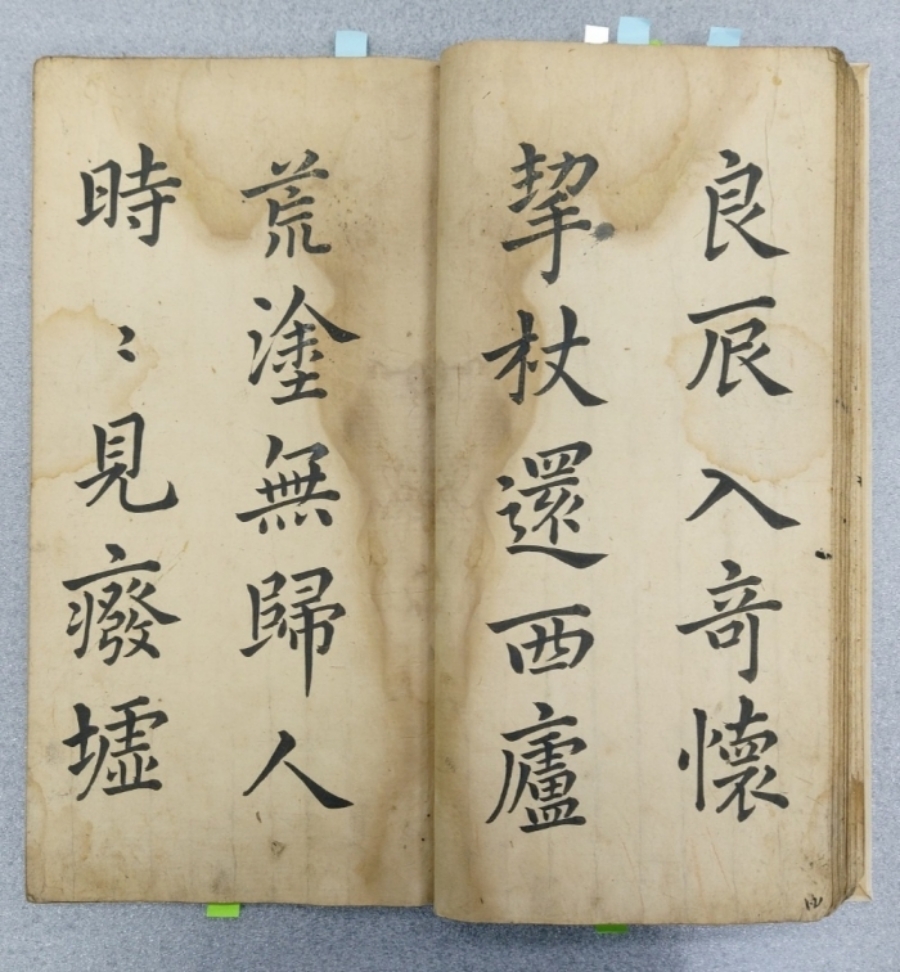 良辰入竒懷
挈杖還西廬
荒塗無歸人
時〻見癈墟
12